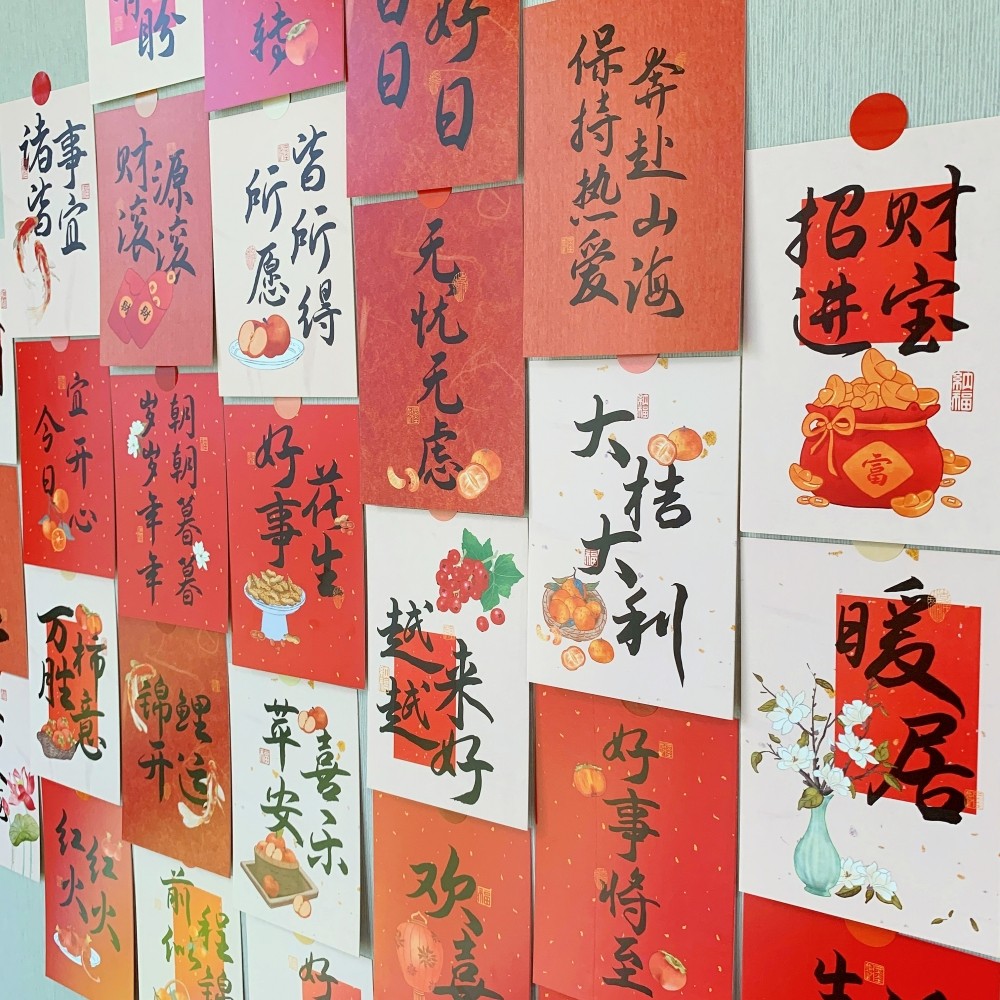 盼
转
日
日
好
日
保持热爱
奔赴山海
招财
进宝
富
納福
诸事
皆宜
财源
滚滚
所愿
皆所得
无忧无虑
今日
宜开心
岁岁年年
朝朝暮暮
好事
花生
大桔
大利
万柿
胜意
锦鲤
开运
苹安
喜乐
越来
越好
暖居
好事将至
红红
火火
前程
似锦
欢喜
好
生